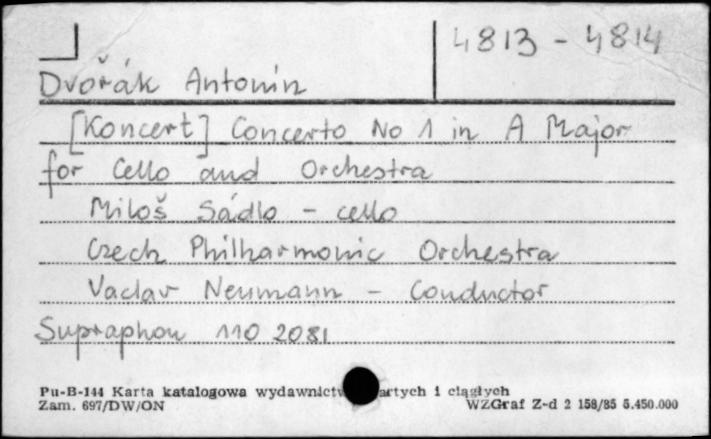 4813 - 4814
Dvořák Antonín
[Koncert] Concerto No 1 in A Major
for Cello and Orchestra
Miloš Sádlo - cello
Czech Philharmonic Orchestra
Vaclav Neumann - Conductor
Supraphon 110 2081
Pu-B-144 Karta katalogowa wydawnictw artych i ciągłych
Zam. 697/DW/ON WZGraf Z-d 2 158/85 5.450.000